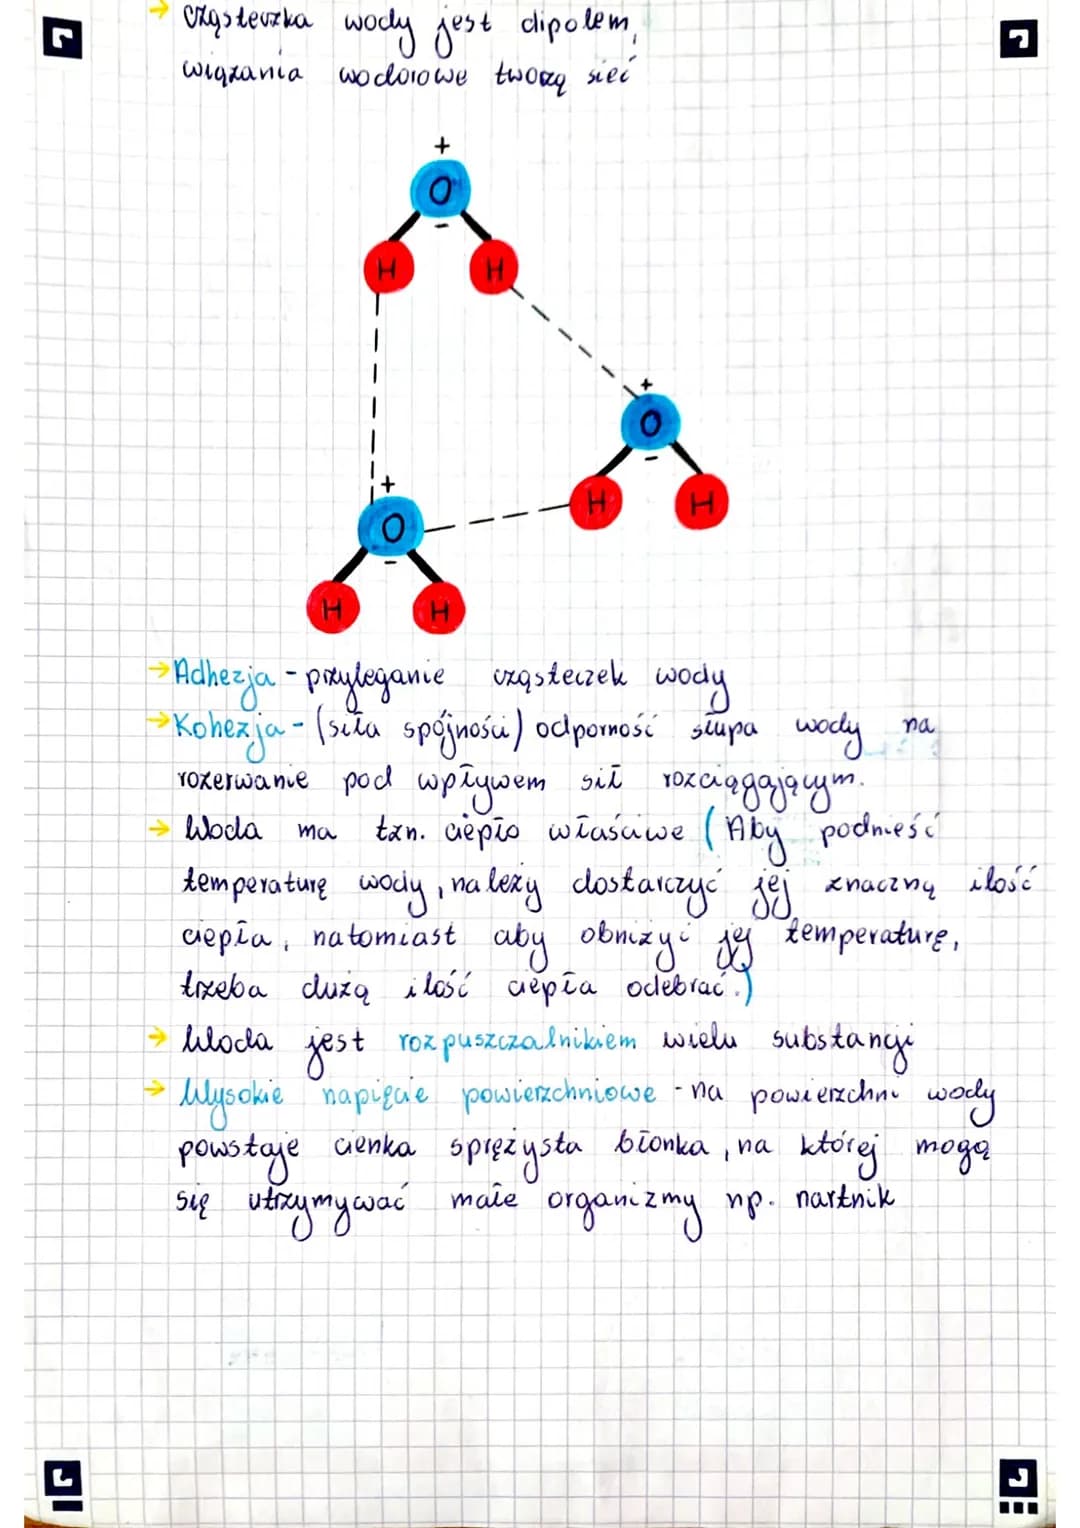 → cząsteczka wody jest dipolem,
wiązania wodorowe tworzą sieć
+
O
-
H H
+
O
-
H H
+
O
-
H H
→ Adhezja - przyleganie cząsteczek wody
→ Kohezja - (siła spójności) odporność słupa wody na
rozerwanie pod wpływem sił rozciągającym.
→ Woda ma tzn. ciepło właściwe (Aby podnieść
temperaturę wody, należy dostarczyć jej znaczną ilość
ciepła, natomiast aby obniżyć jej temperaturę,
trzeba dużą ilość ciepła odebrać.)
→ Woda jest rozpuszczalnikiem wielu substancji
→ Wysokie napięcie powierzchniowe - na powierzchni wody
powstaje cienka sprężysta błonka, na której mogą
się utrzymywać małe organizmy np. nartnik